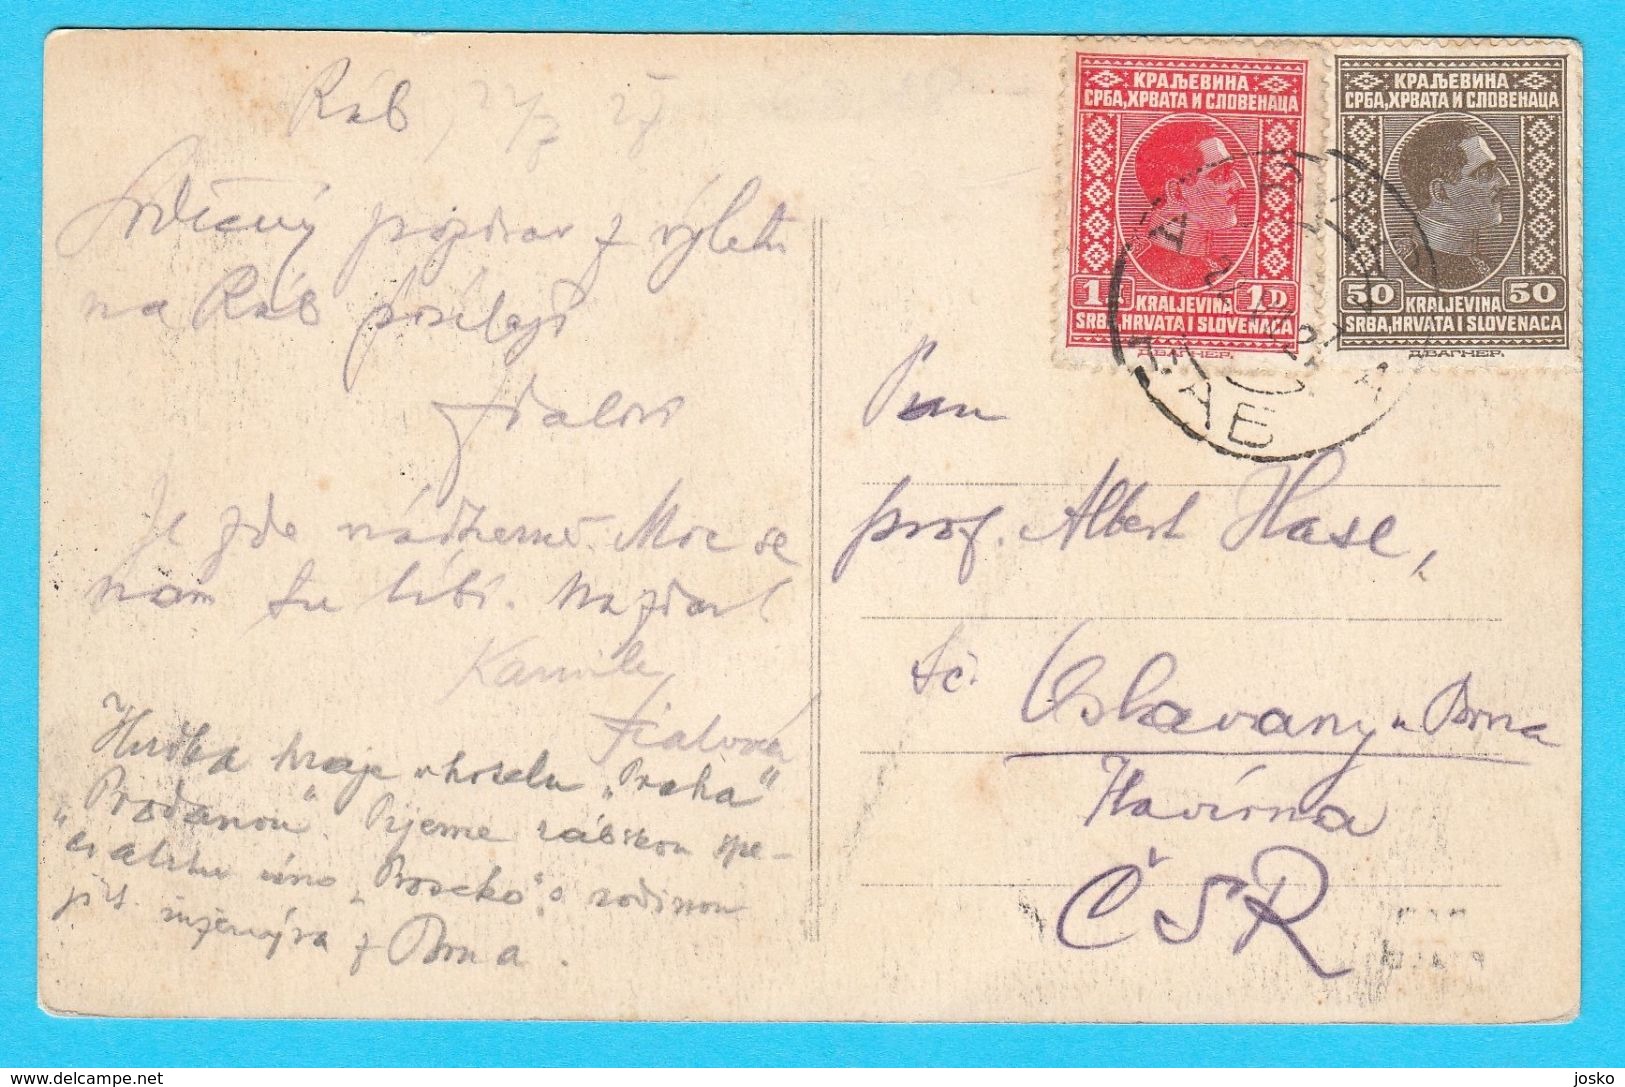 Ráb, 27/7 27
Srdečný pozdrav z výletu
na Ráb posílají
Fialovi
Je zde nádherně. Moc se
nám tu líbí. Nazdar!
Kamila
Fialová
Hudba hraje v hotelu „Praha“
„Prodanou“. Pijeme rábskou spe-
cialitu víno „Prosecko“ s rodinou
inženýra z Brna.
КРАЉЕВИНА
СРБА, ХРВАТА И СЛОВЕНАЦА
1Д 1D
KRALJEVINA
SRBA, HRVATA I SLOVENACA
Д.ВАГНЕР.
КРАЉЕВИНА
СРБА, ХРВАТА И СЛОВЕНАЦА
50 50
KRALJEVINA
SRBA, HRVATA I SLOVENACA
Д.ВАГНЕР.
Pan
prof. Albert Hase,
Oslavany u Brna
Havírna
ČSR
www.delcampe.net
josko